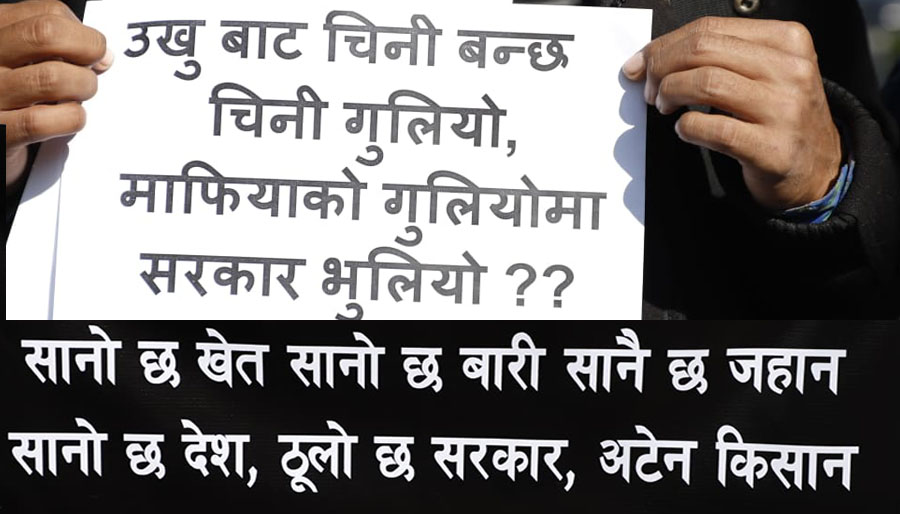 उखु बाट चिनी बन्छ
चिनी गुलियो,
माफियाको गुलियोमा
सरकार भुलियो ??
सानो छ खेत सानो छ बारी सानै छ जहान
सानो छ देश, ठूलो छ सरकार, अटेन किसान